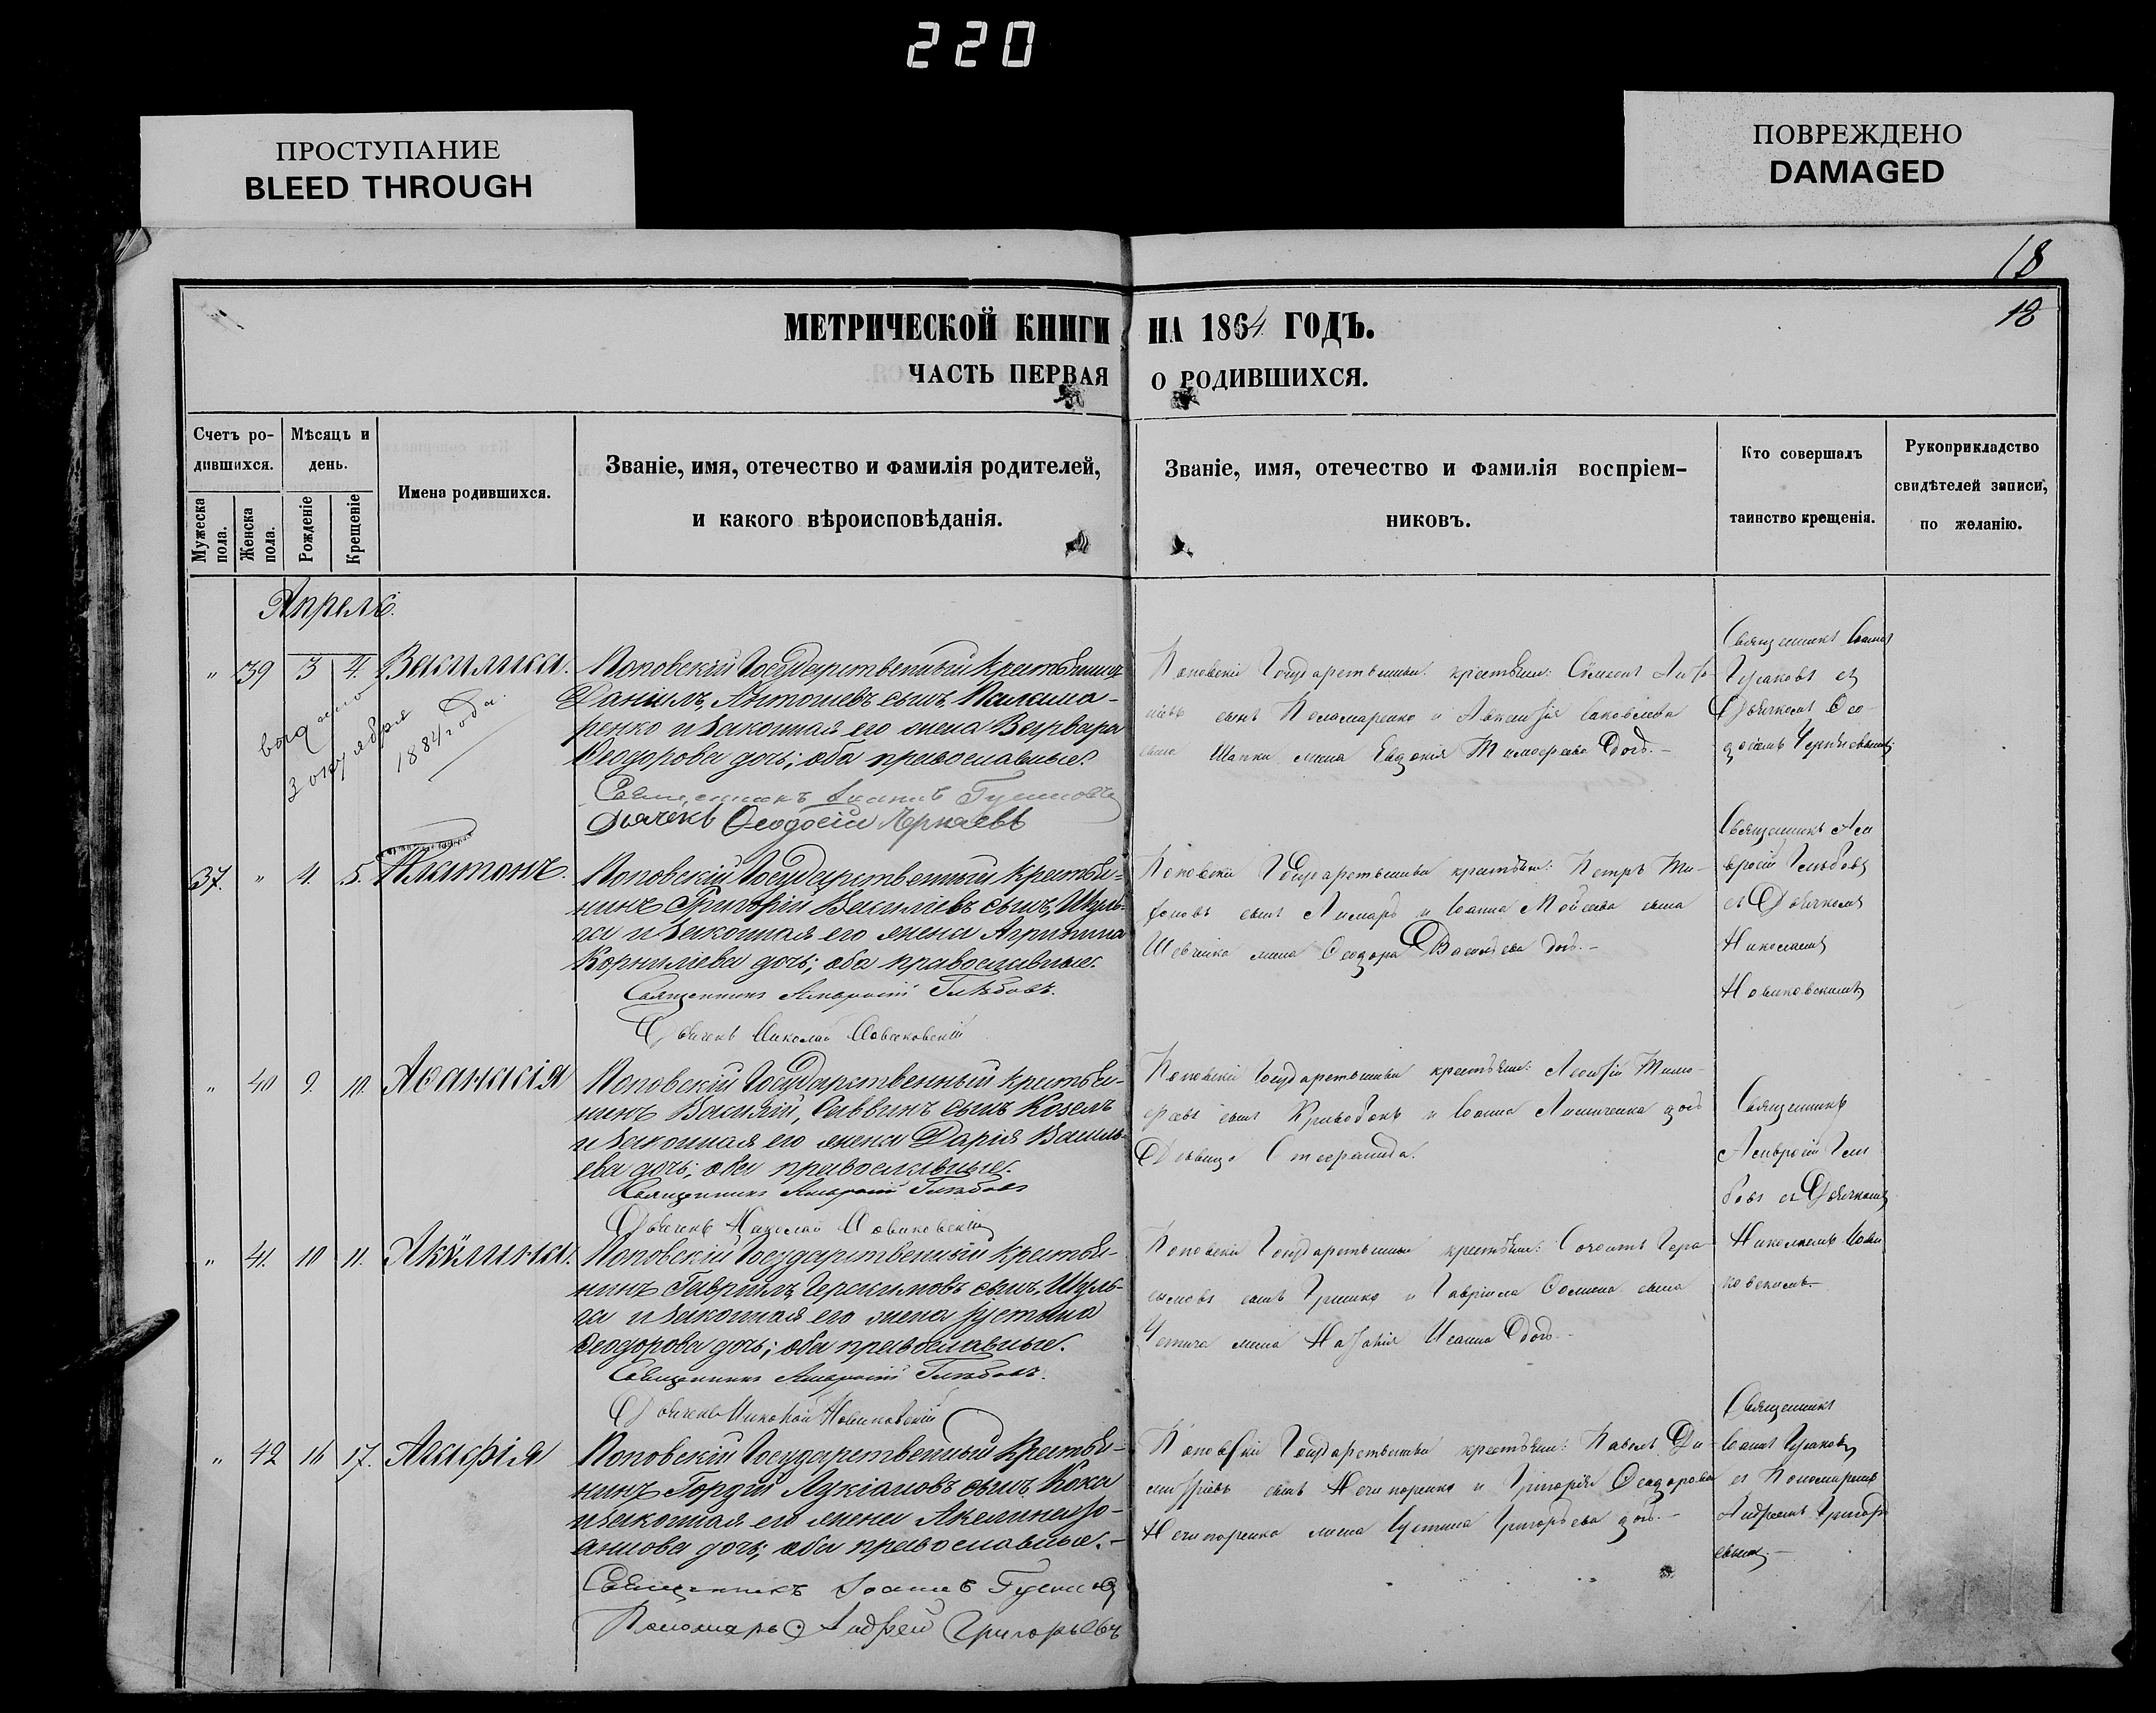 220
ПРОСТУПАНИЕ
BLEED THROUGH
ПОВРЕЖДЕНО
DAMAGED
18
18
МЕТРИЧЕСКОЙ КНИГИ НА 1864 ГОДЪ.
ЧАСТЬ ПЕРВАЯ О РОДИВШИХСЯ.
Счетъ ро-
дившихся.
Мужеска пола.
Женска пола.
Мѣсяцъ и
день.
Рожденіе
Крещеніе
Имена родившихся.
Званіе, имя, отечество и фамилія родителей,
и какого вѣроисповѣданія.
Званіе, имя, отечество и фамилія воспріем-
никовъ.
Кто совершалъ
таинство крещенія.
Рукоприкладство
свидѣтелей записи,
по желанію.
Апрель.
" 39 3 4. Василиса.
Поповскій Государственный крестьянинъ
Даніилъ, Антоніевъ сынъ, Паламар-
ренко и законная его жена Варвара
Ѳеодорова дочь; оба православные.
Священникъ Іоаннъ Гусаковъ
Дьячекъ Ѳеодосій
3 октября
1884 года
Поповскій Государственный крестьян: Сѵмеонъ
сынъ Поламаренко и
Шапки жена Евдокія Тимофеева дочь.-
Священникъ Іоаннъ
Гусаковъ съ
Дьячкомъ Ѳео-
37. " 4. 5. Платонъ.
Поповскій Государственный крестья-
нинъ Григорій Василіевъ сынъ, Шуль-
га и законная его жена Агрипина
Корниліева дочь; оба православные.
Священникъ Амвросій Глѣбовъ.
Дьячекъ Николай Новиковскій
Поповскій Государственный крестьян: Петръ
сынъ Лимарь и Іоанна Мойсеева сына
Шевченка жена Ѳеодора Васильева дочь.-
Священникъ Ам-
вросій Глѣбовъ
съ Дьячкомъ
Николаемъ
Новиковскимъ
" 40 9. 10. Аѳанасія
Поповскій Государственный крестья-
нинъ Василій, Саввинъ сынъ Козелъ
и законная его жена Дарія Василь-
ева дочь; оба православные.
Священникъ Амвросій Глѣбовъ
Дьячекъ Николай Новиковскій
Поповскій Государственный крестьян: Леонтій Тимо-
феевъ сынъ и Іоанна дочь
Дѣвица Стефанида.
Священникъ
Амвросій Глѣ
бовъ съ Дьячкомъ
Николаемъ Нови
ковскимъ.
" 41. 10 11. Акѵлина.
Поповскій Государственный крестья-
нинъ Гавріилъ, Герасимовъ сынъ, Шуль-
га и законная его жена Іустина
Ѳеодорова дочь; оба православные.
Священникъ Амвросій Глѣбовъ.
Дьячекъ Николай Новиковскій
Поповскій Государственный крестьян: Созонтъ Гера
симовъ сынъ Гришко и Гавріила Ѳомина сына
жена Наталія Иванова дочь.-
" 42 16 17. Агафія
Поповскій Государственный крестья-
нинъ Гордій Лукіановъ сынъ Кока
и законная его жена Акелина Іо-
аннова дочь; оба православные.-
Священникъ Іоаннъ Гусаковъ
Пономарь Андрей Григорьевъ
Поповскій Государственный крестьян: Павелъ Ди-
митріевъ сынъ Нечипоренко и Григорія Ѳеодорова
Нечипоренка жена Іустина Григорьева дочь.-
Священникъ
Іоаннъ Гусаковъ
съ Пономаремъ
Андреемъ Григорь
евымъ.-